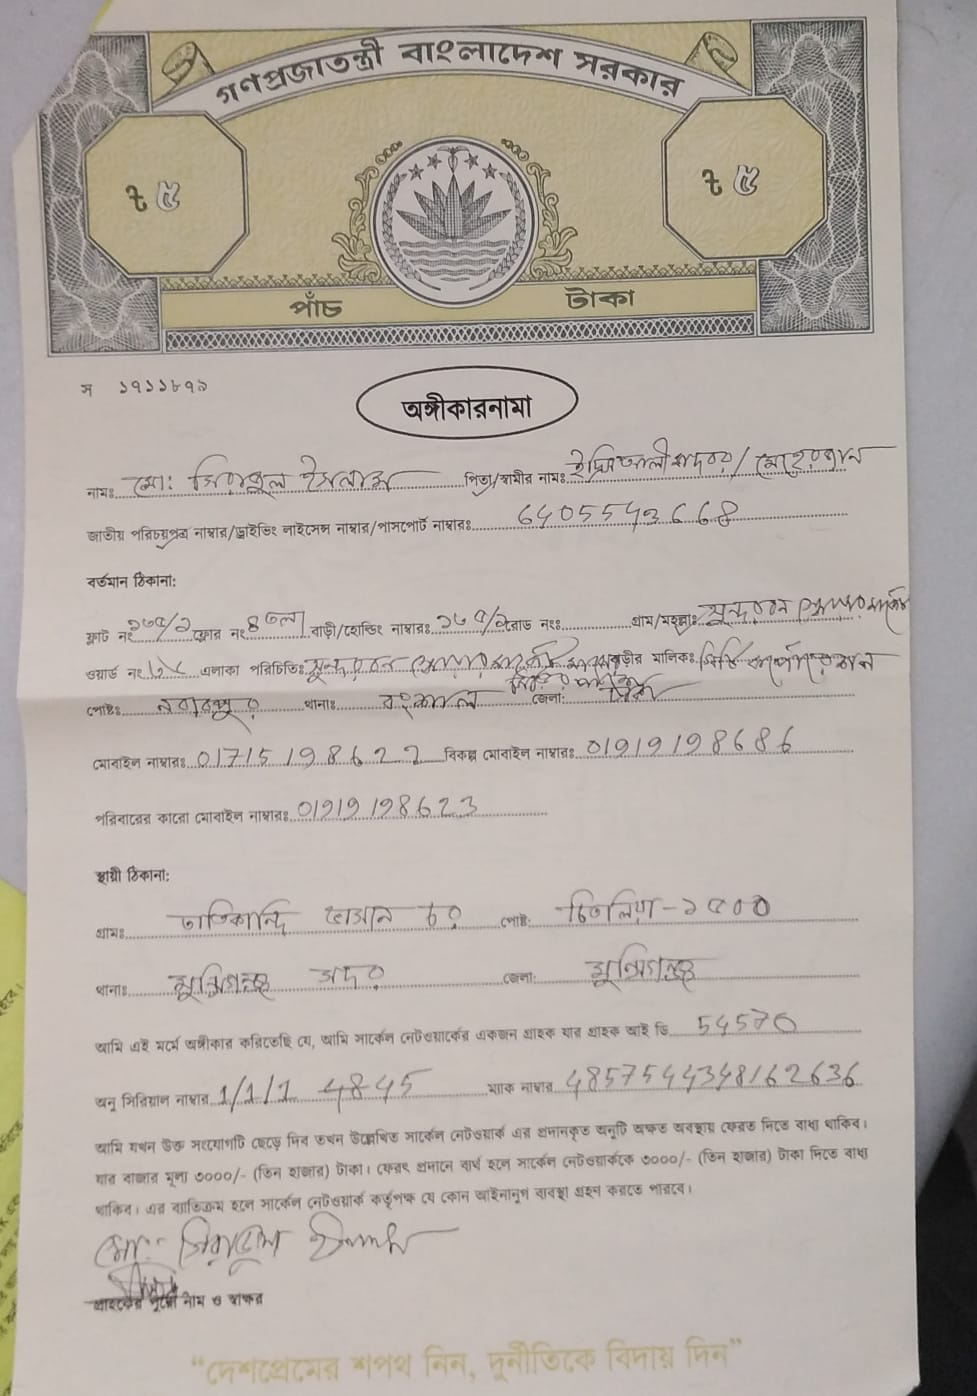 গণপ্রজাতন্ত্রী বাংলাদেশ সরকার
৳ ৫ ৳ ৫
পাঁচ টাকা
স ১৭১১৮৭৯
অঙ্গীকারনামা
নামঃ মো: সিরাজুল ইসলাম পিতা/স্বামীর নামঃ
জাতীয় পরিচয়পত্র নাম্বার/ড্রাইভিং লাইসেন্স নাম্বার/পাসপোর্ট নাম্বারঃ 6405543668
বর্তমান ঠিকানা:
ফ্লাট নং ফ্লোর নং ৪তলা বাড়ী/হোল্ডিং নাম্বারঃ রোড নংঃ গ্রাম/মহল্লাঃ সুন্দরবন
ওয়ার্ড নং এলাকা পরিচিতিঃ সুন্দরবন বাড়ীর মালিকঃ সিটি কর্পোরেশন
পোষ্টঃ নবাবপুর থানাঃ বংশাল জেলা: ঢাকা
মোবাইল নাম্বারঃ 01715198622 বিকল্প মোবাইল নাম্বারঃ 01919198686
পরিবারের কারো মোবাইল নাম্বারঃ 01919198623
স্থায়ী ঠিকানা:
গ্রামঃ পোষ্ট: চিতলিয়া-১৫০০
থানাঃ মুন্সিগঞ্জ সদর জেলা: মুন্সিগঞ্জ
আমি এই মর্মে অঙ্গীকার করিতেছি যে, আমি সার্কেল নেটওয়ার্কের একজন গ্রাহক যার গ্রাহক আই ডি 54570
অনু সিরিয়াল নাম্বার 1/1/1 4845 ম্যাক নাম্বার 4857544348162636
আমি যখন উক্ত সংযোগটি ছেড়ে দিব তখন উল্লেখিত সার্কেল নেটওয়ার্ক এর প্রদানকৃত অনুটি অক্ষত অবস্থায় ফেরত দিতে বাধ্য থাকিব।
যার বাজার মূল্য ৩০০০/- (তিন হাজার) টাকা। ফেরৎ প্রদানে ব্যর্থ হলে সার্কেল নেটওয়ার্ককে ৩০০০/- (তিন হাজার) টাকা দিতে বাধ্য
থাকিব। এর ব্যতিক্রম হলে সার্কেল নেটওয়ার্ক কর্তৃপক্ষ যে কোন আইনানুগ ব্যবস্থা গ্রহণ করতে পারবে।
মো: সিরাজুল ইসলাম
গ্রাহকের পুরো নাম ও স্বাক্ষর
“দেশপ্রেমের শপথ নিন, দুর্নীতিকে বিদায় দিন”